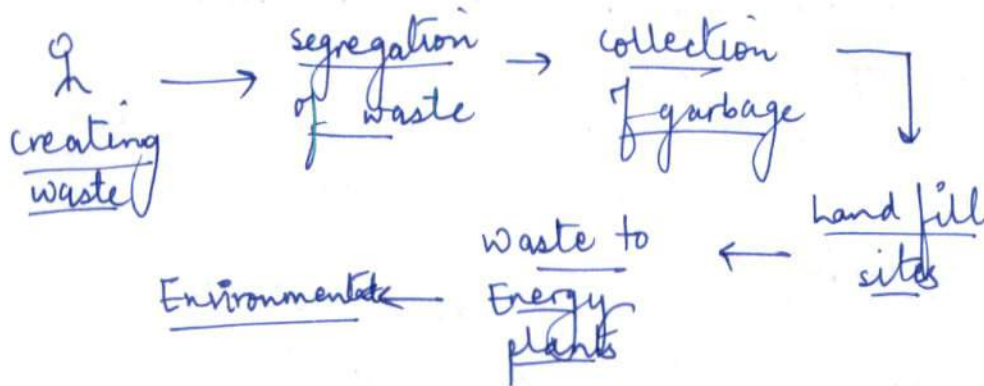 creating
waste
segregation
of waste
collection
of garbage
Land fill
sites
Waste to
Energy
plants
Environment